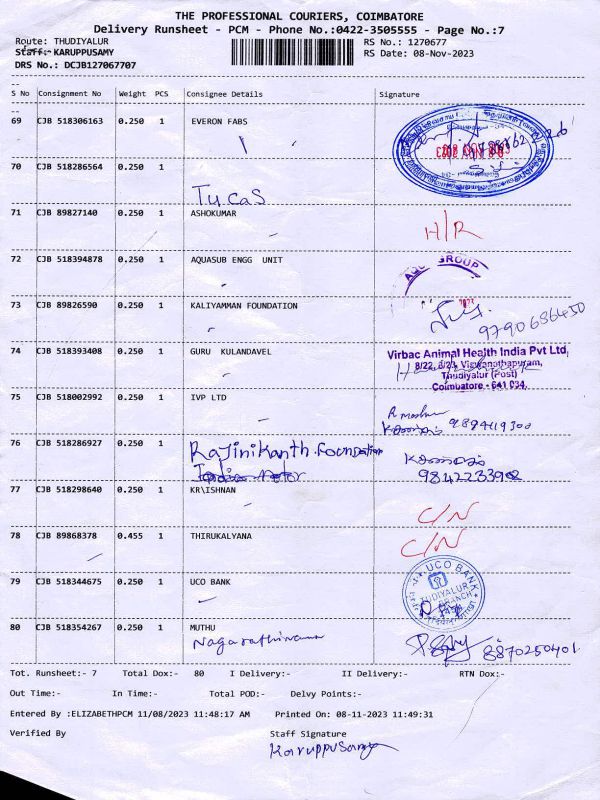 THE PROFESSIONAL COURIERS, COIMBATORE
Delivery Runsheet - PCM - Phone No.:0422-3505555 - Page No.:7
Route: THUDIYALUR
RS No.: 1270677
Staff:- KARUPPUSAMY
RS Date: 08-Nov-2023
DRS No.: DCJB127067707
S No Consignment No Weight PCS Consignee Details Signature
69 CJB 518306163 0.250 1 EVERON FABS
70 CJB 518286564 0.250 1
Tucas
71 CJB 89827140 0.250 1 ASHOKUMAR
H/R
72 CJB 518394878 0.250 1 AQUASUB ENGG UNIT
GROUP
73 CJB 89826590 0.250 1 KALIYAMMAN FOUNDATION
9790686450
74 CJB 518393408 0.250 1 GURU KULANDAVEL
Virbac Animal Health India Pvt Ltd,
8/22, 8/23, Vignanothapuram,
Thudiyalur (Post)
Coimbatore - 641 034.
75 CJB 518002992 0.250 1 IVP LTD
9894419300
76 CJB 518286927 0.250 1 Rajinikanth. Foundation
9842233902
77 CJB 518298640 0.250 1 KR\ISHNAN
C/N
78 CJB 89868378 0.455 1 THIRUKALYANA
C/N
79 CJB 518344675 0.250 1 UCO BANK
UCO BANK
THUDIYALUR
BRANCH
80 CJB 518354267 0.250 1 MUTHU
8870250401
Tot. Runsheet:- 7 Total Dox:- 80 I Delivery:- II Delivery:- RTN Dox:-
Out Time:- In Time:- Total POD:- Delvy Points:-
Entered By :ELIZABETHPCM 11/08/2023 11:48:17 AM Printed On: 08-11-2023 11:49:31
Verified By Staff Signature
Karuppusamy